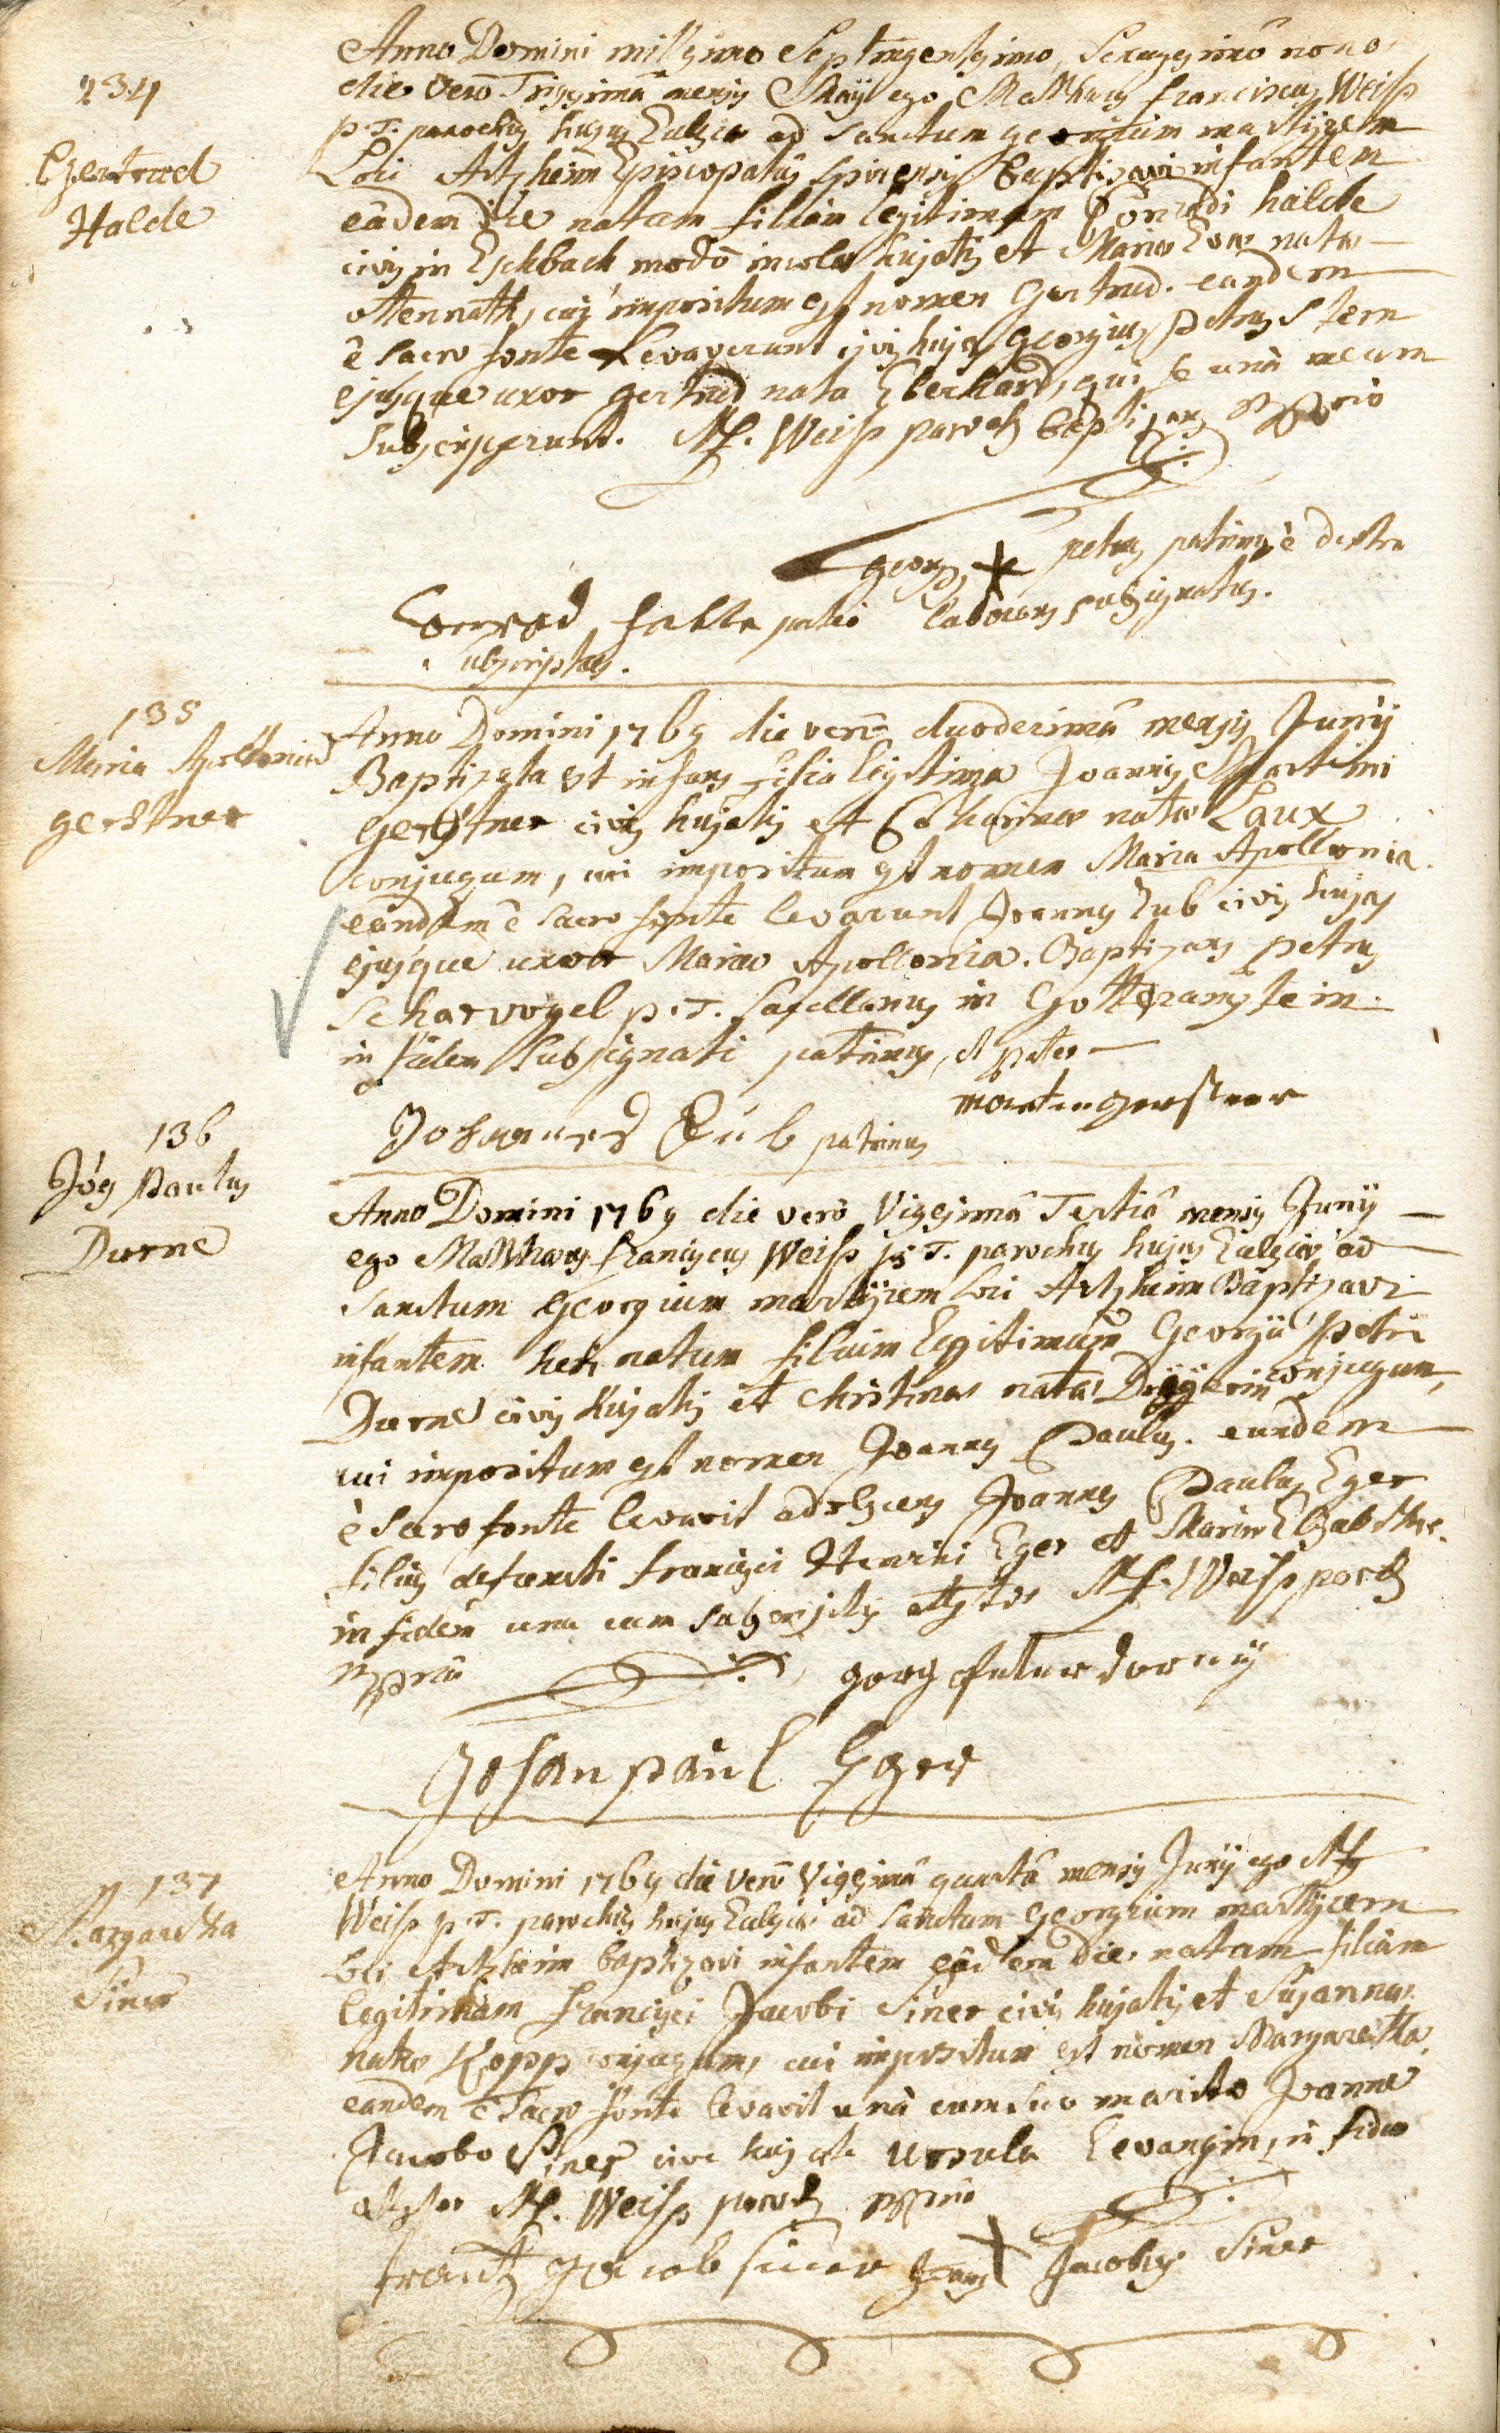 234
Gertrud
Halde
Anno Domini millesimo Septingentesimo, Sexagesimo nono
die vero Trigesimâ mensis Maÿ ego Matthæus franciscus Weiss
p. T. parochus hujus Ecclesiæ ad Sanctum georgium martÿrem
Loci Artzheim Episcopatûs Spirensis baptizavi infantem
eâdem die natam filiam legitimam Conradi halde
civis in Eschbach modô incolæ hujatis et Mariæ Evæ natæ
impositum est nomen Gertrud. eandem
ê Sacro fonte Levaverunt civis hujas georgius petrus Stern
ejusque uxor gertrud nata Eberhard, qui se unà mecum
Subscripserunt. M. Weiss paroch baptizans mpprio
georg petrus patrinus è dextra
Conrad halde patris laborans subsignatus.
Subscriptus.
135
Maria Apollonia
gerstner
Anno Domini 1769 die vero duodecimâ mensis Junÿ
Baptizata est infans filia legitima Joannis Martini
gerstner civis hujatis et Catharinæ natæ Laux
conjugum, cui impositum est nomen Maria Apollonia.
eandem ê Sacro fonte levarunt Joannes Eub civis hujas
ejusque uxor Maria Apollonia. Baptizans petrus
Scharvogel p. T. Sacellanus in Gotteramstein.
in fidem Subsignati patrinus, et pater
martin gerstner
Johannes Eúb patrinus
136
Jôes Paulus
Durne
Anno Domini 1769 die verò Vigesimâ Tertiâ mensis Junÿ
ego Matthæus Franciscus Weiss p. T. parochus hujus Ecclesiæ ad
Sanctum Georgium martÿrem Loci Artzheim Baptizavi
infantem heri natum filium legitimum Georgii Petri
Durne civis hujatis et Christinæ natæ conjugum,
cui impositum est nomen Joannes Paulus. eundem
è Sacro fonte levavit adolescens Joannes Paulus Eger
filius defuncti francisci Henrici Eger et Mariæ Elisabethæ.
in fidem una cum subscriptis attestor M. F. Weiss paroch
mppriâ
Johan paúl Eger
137
Margaretha
Siner
Anno Domini 1769 die vero Vigesimâ quartâ mensis Junÿ ego M.
Weiss p. T. parochus hujus Ecclesiæ ad Sanctum Georgium martÿrem
loci Artzheim baptizavi infantem eâdem die natam filiam
legitimam francisci Jacobi Siner civis hujatis et Susannæ
natæ Kopp conjugum, cui impositum est nomen Margaretha.
eandem ê Sacro fonte levavit unà cum suo marito Joanne
Jacobo Siner cive hujate Ursula in fidem
attestor M. Weiss paroch mpprio
frantz Jacob siner Joannes Jacobus Siner